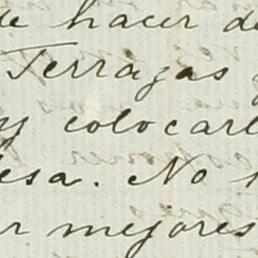 de hacer de
Terrazas y
y colocarl
esa. No
r mejores